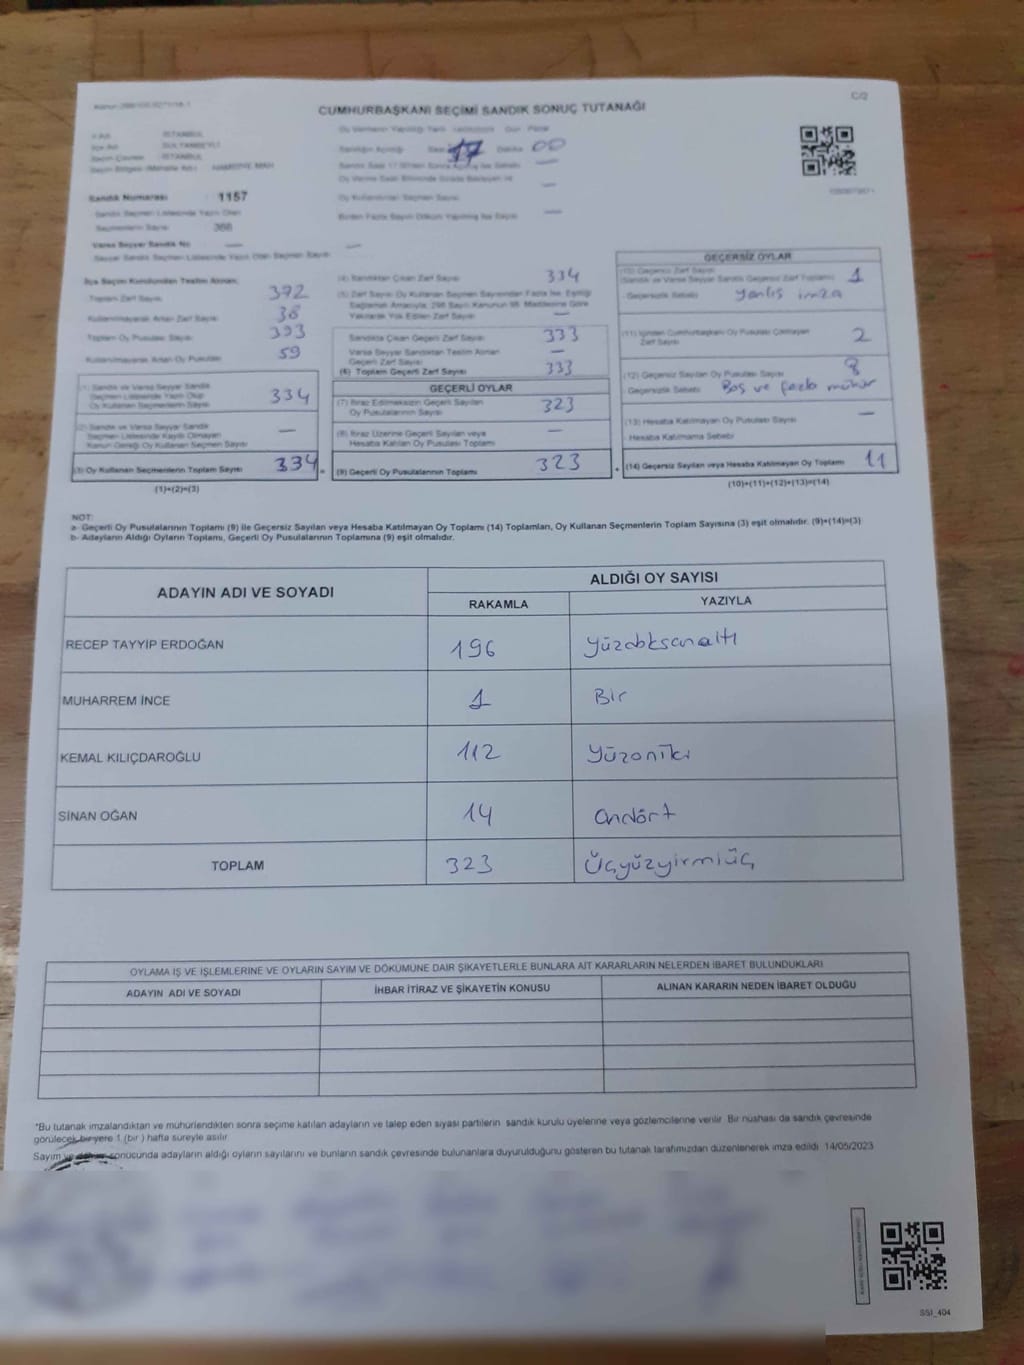 C/2
CUMHURBAŞKANI SEÇİMİ SANDIK SONUÇ TUTANAĞI
İl Adı İSTANBUL
İlçe Adı SULTANBEYLİ
Seçim Çevresi İSTANBUL
Seçim Bölgesi (Mahalle Adı) HAMİDİYE MAH
Oy Vermenin Yapıldığı Tarih 14/05/2023 Gün Pazar
Sandığın Açıldığı Saat 17 Dakika 00
Sandık Numarası 1157
Sandık Seçmen Listesinde Yazılı Olan
Seçmenlerin Sayısı 366
Birden Fazla Sayım Döküm Yapılmış İse Sayısı —
Varsa Seyyar Sandık No —
Seyyar Sandık Seçmen Listesinde Yazılı Olan Seçmen Sayısı —
İlçe Seçim Kurulundan Teslim Alınan;
Toplam Zarf Sayısı 372
Kullanılmayarak Artan Zarf Sayısı 38
Toplam Oy Pusulası Sayısı 393
Kullanılmayarak Artan Oy Pusulası 59
(1) Sandık ve Varsa Seyyar Sandık
Seçmen Listesinde Yazılı Olup
Oy Kullanan Seçmenlerin Sayısı 334
(2) Sandık ve Varsa Seyyar Sandık
Seçmen Listesinde Kayıtlı Olmayan
Kanun Gereği Oy Kullanan Seçmen Sayısı —
(3) Oy Kullanan Seçmenlerin Toplam Sayısı 334 =
(1)+(2)=(3)
(4) Sandıktan Çıkan Zarf Sayısı 334
(5) Zarf Sayısı Oy Kullanan Seçmen Sayısından Fazla İse, Eşitliği
Sağlamak Amacıyla, 298 Sayılı Kanunun 98. Maddesine Göre
Yakılarak Yok Edilen Zarf Sayısı —
Sandıkta Çıkan Geçerli Zarf Sayısı 333
Varsa Seyyar Sandıktan Teslim Alınan
Geçerli Zarf Sayısı —
(6) Toplam Geçerli Zarf Sayısı 333
GEÇERLİ OYLAR
(7) İtiraz Edilmeksizin Geçerli Sayılan
Oy Pusulalarının Sayısı 323
(8) İtiraz Üzerine Geçerli Sayılan veya
Hesaba Katılan Oy Pusulaları Toplamı —
(9) Geçerli Oy Pusulalarının Toplamı 323 +
GEÇERSİZ OYLAR
(10) Geçersiz Zarf Sayısı
(Sandık ve Varsa Seyyar Sandık Geçersiz Zarf Toplamı) 1
Geçersizlik Sebebi yanlış imza
(11) İçinden Cumhurbaşkanı Oy Pusulası Çıkmayan
Zarf Sayısı 2
(12) Geçersiz Sayılan Oy Pusulası Sayısı 8
Geçersizlik Sebebi Boş ve fazla mühür
(13) Hesaba Katılmayan Oy Pusulası Sayısı —
Hesaba Katılmama Sebebi
(14) Geçersiz Sayılan veya Hesaba Katılmayan Oy Toplamı 11
(10)+(11)+(12)+(13)=(14)
NOT:
a- Geçerli Oy Pusulalarının Toplamı (9) ile Geçersiz Sayılan veya Hesaba Katılmayan Oy Toplamı (14) Toplamları, Oy Kullanan Seçmenlerin Toplam Sayısına (3) eşit olmalıdır. (9)+(14)=(3)
b- Adayların Aldığı Oyların Toplamı, Geçerli Oy Pusulalarının Toplamına (9) eşit olmalıdır.
ADAYIN ADI VE SOYADI ALDIĞI OY SAYISI
RAKAMLA YAZIYLA
RECEP TAYYİP ERDOĞAN 196 Yüzdoksanaltı
MUHARREM İNCE 1 Bir
KEMAL KILIÇDAROĞLU 112 Yüzoniki
SİNAN OĞAN 14 Ondört
TOPLAM 323 Üçyüzyirmiüç
OYLAMA İŞ VE İŞLEMLERİNE VE OYLARIN SAYIM VE DÖKÜMÜNE DAİR ŞİKAYETLERLE BUNLARA AİT KARARLARIN NELERDEN İBARET BULUNDUKLARI
ADAYIN ADI VE SOYADI İHBAR İTİRAZ VE ŞİKAYETİN KONUSU ALINAN KARARIN NEDEN İBARET OLDUĞU
*Bu tutanak imzalandıktan ve mühürlendikten sonra seçime katılan adayların ve talep eden siyasi partilerin sandık kurulu üyelerine veya gözlemcilerine verilir. Bir nüshası da sandık çevresinde
görülecek bir yere 1 (bir ) hafta süreyle asılır.
Sayım ve döküm sonucunda adayların aldığı oyların sayılarını ve bunların sandık çevresinde bulunanlara duyurulduğunu gösteren bu tutanak tarafımızdan düzenlenerek imza edildi. 14/05/2023
SSI_404